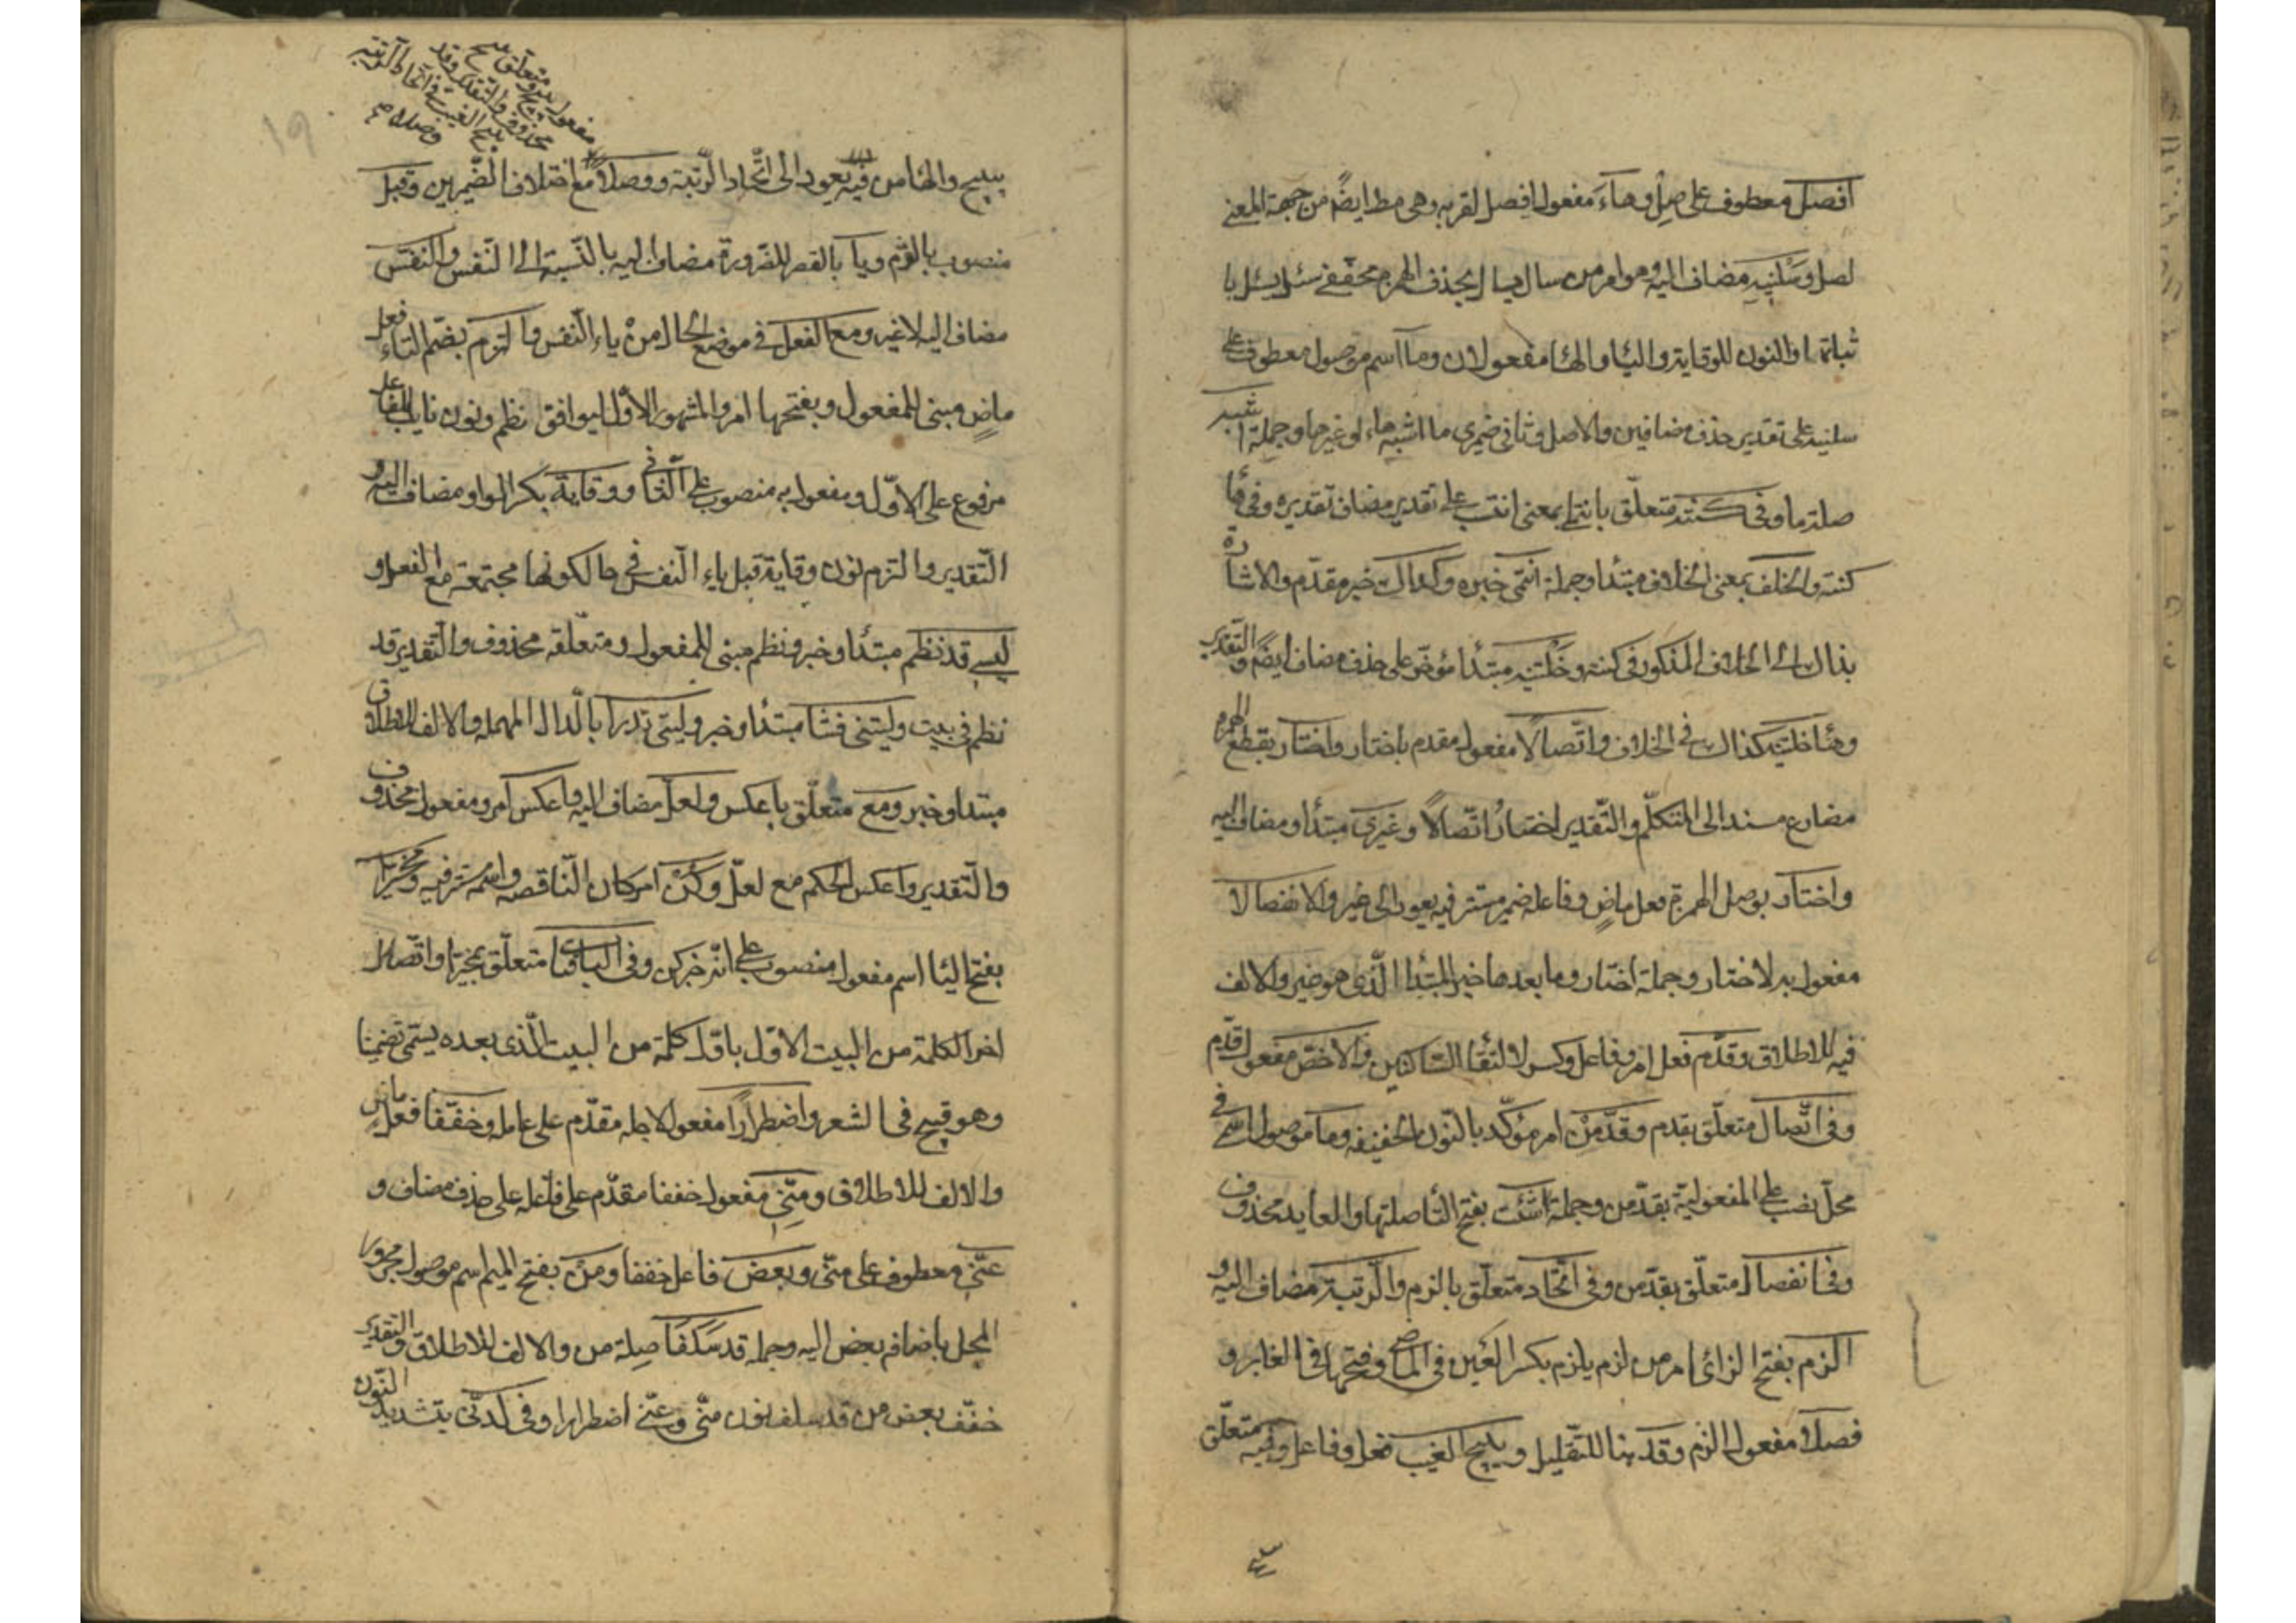 افصل معطوف على صل وهاء مفعول افصل لقربه وهى مط ايضًا من جهة المعنى
لصل وسلنيه مضاف اليه وهو امر من سال يسال بحذف الهمزة مخفف سئل يسئل با
ثباتها والنون للوقاية والياء والهاء مفعولان وما اسم موصول معطوف على
سلنيه على تقدير حذف مضافين والاصل وثانى ضميرى ما اشبه هاء او غيرها وجملة اشبه
صلة ما وفى كنته متعلّق بانتمى بمعنى انتسب على تقدير مضاف تقديره وفى هاء
كنته والخلف بمعنى الخلاف مبتدا وجملة انتمى خبره وكذاك خبر مقدّم والاشارة
بذاك الى الخلاف المذكور فى كنته وخلتنيه مبتدأ مؤخّر على حذف مضاف ايضًا والتقدير
وهاء خلتنيه كذاك فى الخلاف واتّصالًا مفعول مقدم باختار واختار بقطع الهمزة
مضارع مسند الى المتكلّم والتّقدير اختار اتّصالًا وغيرى مبتدأ ومضاف اليه
واختار بوصل الهمزة فعل ماضٍ وفاعله ضمير مستتر فيه يعود الى غير والانفصالا
مفعول به لاختار وجملة اختار وما بعدها خبر المبتدأ الّذى هو غير والالف
فيه للاطلاق وقدّم فعل امر وفاعل وكسر لالتقاء السّاكنين والاخصّ مفعول قدّم
وفى اتّصال متعلّق بقدم وقدّمن امر مؤكّد بالنّون الخفيفه وما موصول اسمى فى
محلّ نصب على المفعوليّة بقدّمن وجملة شئت بفتح التاء صلتها والعايد محذوف
وفى انفصال متعلّق بقدّمن وفى اتّحاد متعلّق بالزم والرّتبة مضاف اليه و
الزم بفتح الزاى امر من لزم يلزم بكسر العين فى الماضى وفتحها فى الغابر و
فصلا مفعول الزم وقد هنا للتّقليل ويبيح الغيب فعل وفاعل وفيه متعلّق
مفعول به ومتعلق يبيح
محذوف والتقدير وقد
يبيح الغيب فى اتحاد الرتبة
وصلا صح
١٩
يبيح والهاء من فيه يعود الى اتّحاد الرّتبة ووصلًا مع اختلاف الضّميرين وقبل
منصوب بالتزم ويا بالقصر للضّرورة مضاف اليه بالنّسبة الى النّفس والنفس
مضاف اليه لا غير ومع الفعل فى موضع الحال من ياء النّفس والتزم بضم التاء فعل
ماضٍ مبنى للمفعول وبفتحها امر والمشهور الاوّل ليوافق نظم ونون نايب الفاعل
مرفوع على الاوّل ومفعول به منصوب على الثانى ووقاية بكسر الواو ومضاف اليه و
التّقدير والتزم نون وقاية قبل ياء النّفس فى حال كونها مجتمعة مع الفعل و
ليسى قد نظم مبتدأ وخبر ونظم مبنى للمفعول ومتعلّقه محذوف والتّقدير قد
نظم فى بيت وليتنى فشا مبتدأ وخبر وليتى ندرا بالّدال المهملة والالف للاطلاق
مبتدأ وخبر ومع متعلّق باعكس ولعلّ مضاف اليه واعكس امر ومفعوله محذوف
والتّقدير واعكس الحكم مع لعلّ وكن امر كان النّاقصه واسمه مستتر فيه ومخيّرا
بفتح الياء اسم مفعول منصوب على انّه خبر كن وفى الباقيات متعلّق بمخيّرا واتّصال
اخر الكلمة من البيت الاوّل باوّل كلمة من البيت الّذى بعده يسمّى تضمينا
وهو قبيح فى الشعر واضطرارًا مفعول لاجله مقدّم على عامله وخفّفا فعل ماض
والالف للاطلاق ومنّى مفعول خففا مقدّم على فاعله على حذف مضاف و
عنّى معطوف على منّى وبعض فاعل خففا ومن بفتح الميم اسم موصول مجرور
المحل باضافه بعض اليه وجمله قد سلفا صلة من والالف للاطلاق والتقدير
خفّف بعض من قد سلف نون منّى وعنّى اضطرارا وفى لدنّى بتشديد النّون